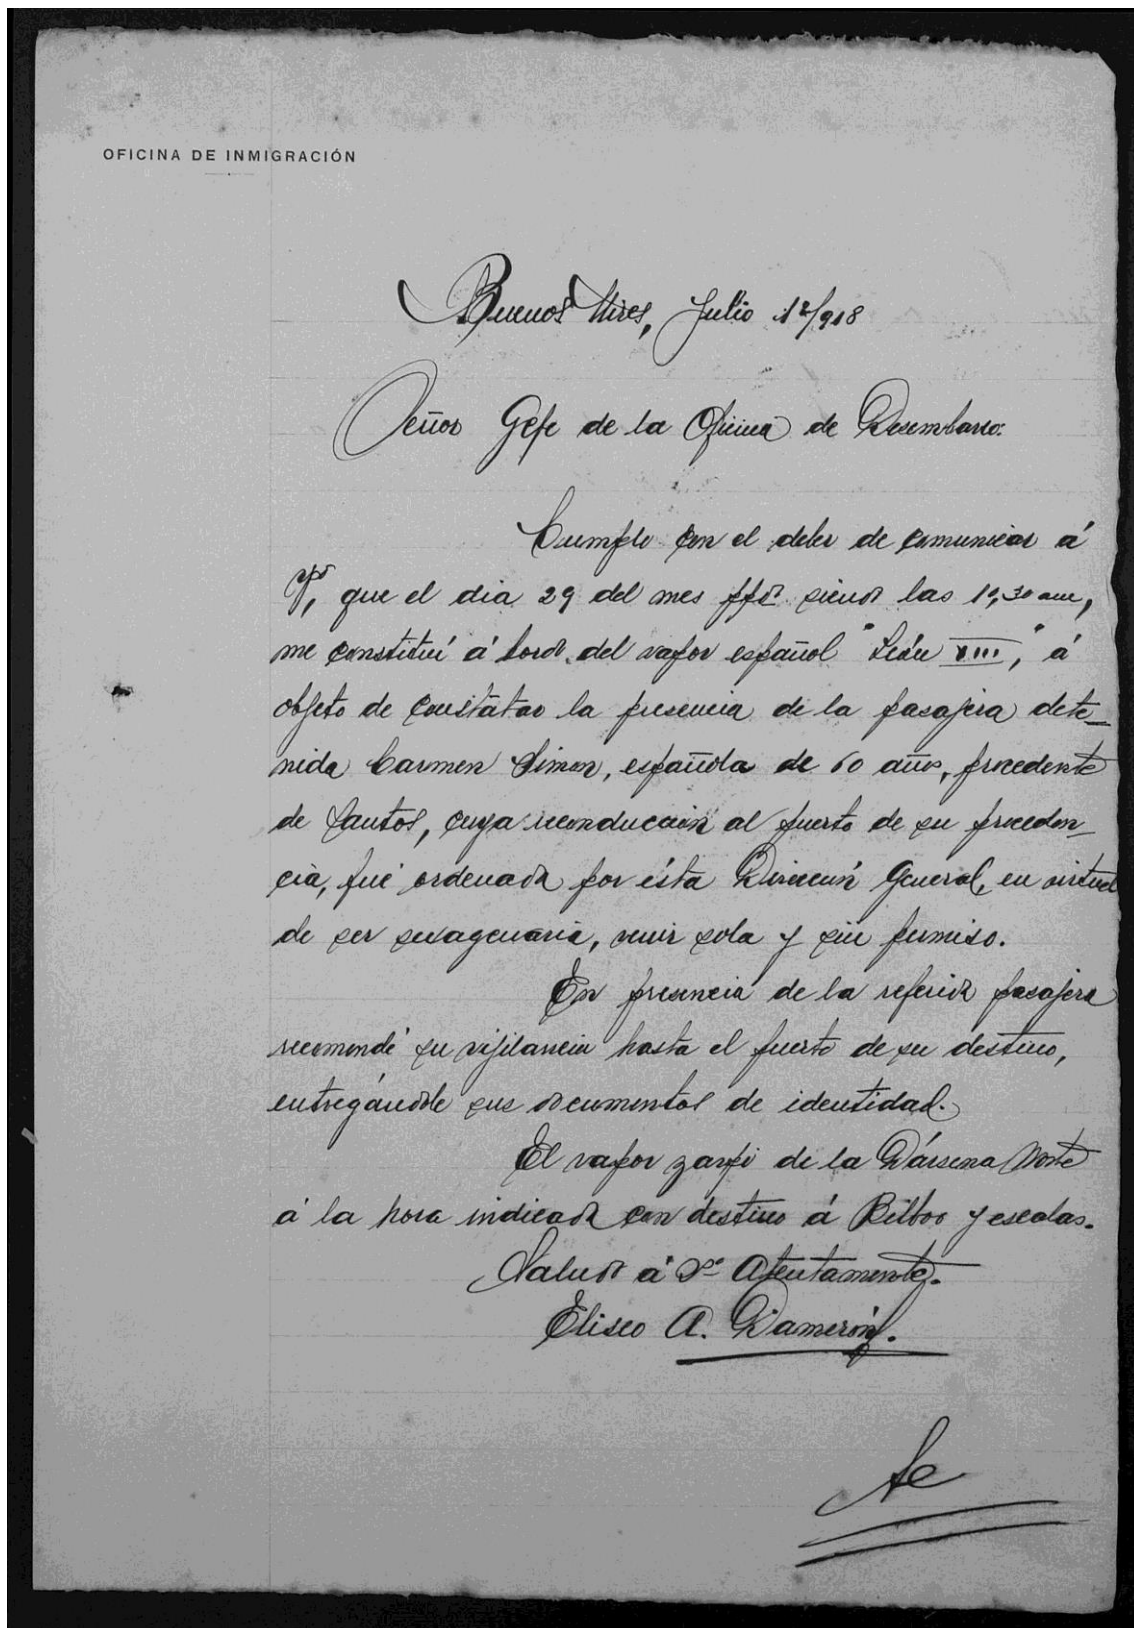 OFICINA DE INMIGRACIÓN
Buenos Aires, Julio 1º/918
Señor Gefe de la Oficina de Desembarco:
Cumplo con el deber de comunicar á
Vd, que el dia 29 del mes ppdo siendo las 10,30 am,
me constituí á bordo del vapor español "León XIII", á
objeto de constatar la presencia de la pasajera dete-
nida Carmen Simon, española de 60 años, procedente
de Santos, cuya reconducción al puerto de su proceden-
cia, fué ordenada por ésta Dirección General, en virtud
de ser sexagenaria, venir sola y sin permiso.
En presencia de la referida pasajera
recomendé su vijilancia hasta el puerto de su destino,
entregándole sus documentos de identidad.
El vapor zarpó de la Dársena Norte
á la hora indicada con destino á Bilbao y escalas.
Saludo á Vd Atentamente.
Eliseo A. Damerón.